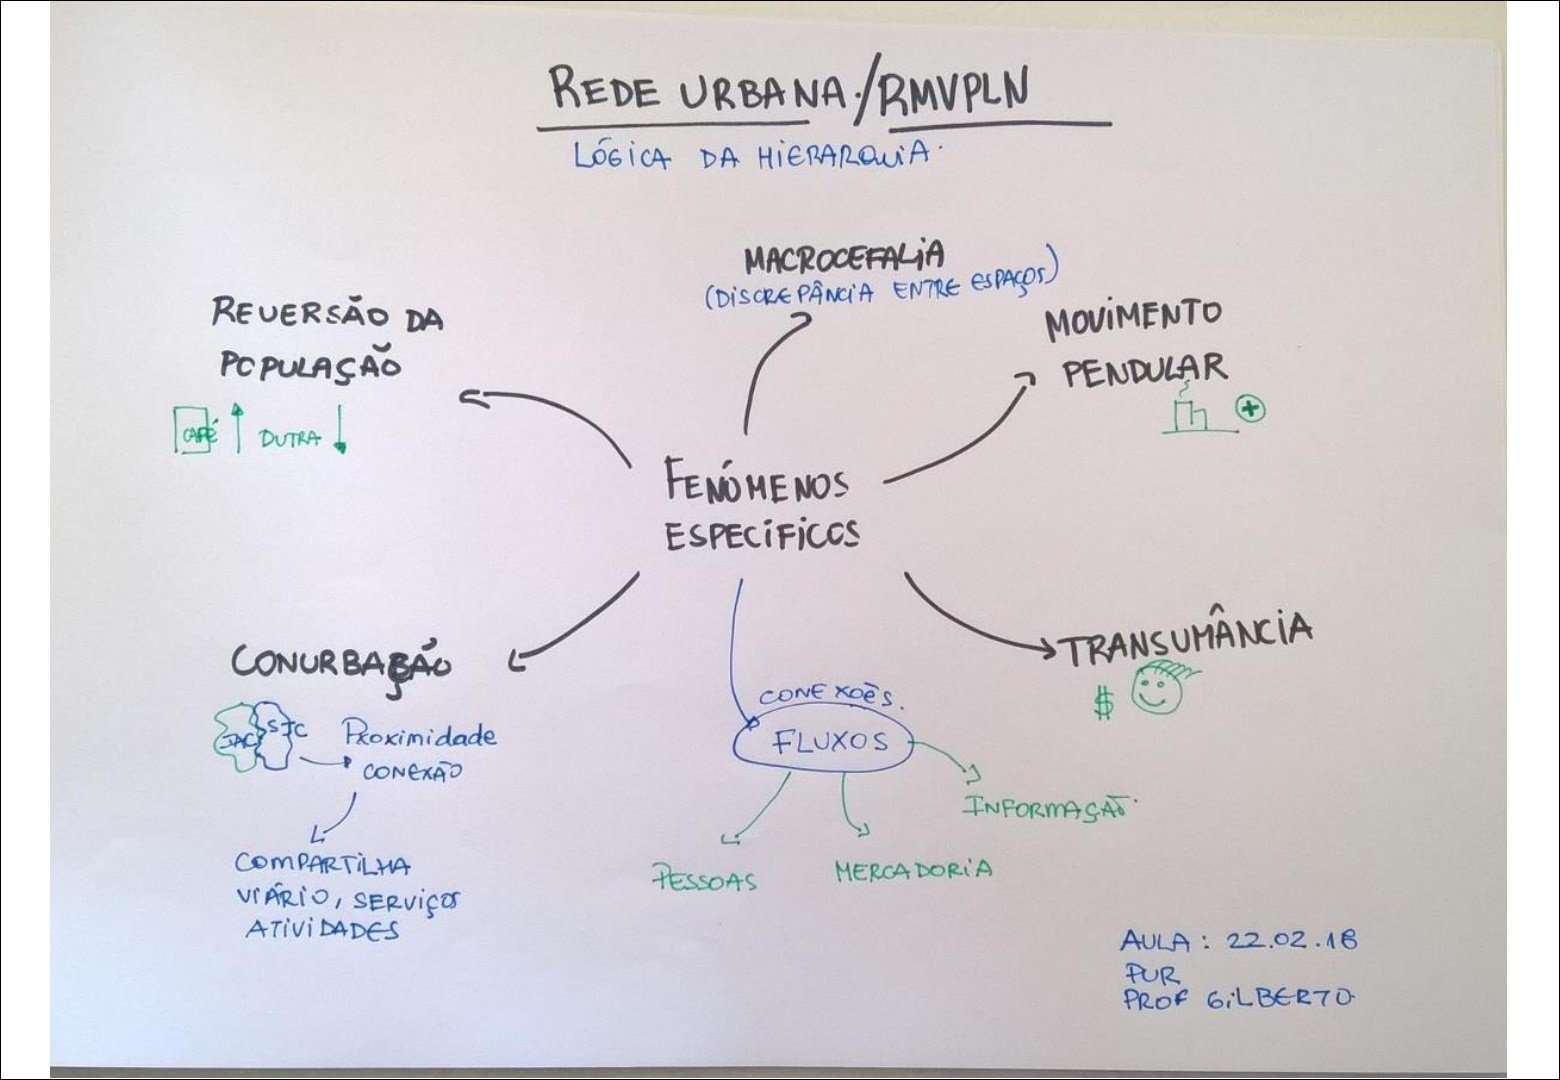 REDE URBANA./RMVPLN
LÓGICA DA HIERARQUIA.
MACROCEFALIA
(DISCREPÂNCIA ENTRE ESPAÇOS)
REVERSÃO DA
POPULAÇÃO
CAFÉ DUTRA
MOVIMENTO
PENDULAR
FENÓMENOS
ESPECÍFICOS
CONURBAÇÃO
JAC SJC Proximidade
CONEXÃO
COMPARTILHA
VIÁRIO, SERVIÇOS
ATIVIDADES
CONEXOÊS.
FLUXOS
PESSOAS
MERCADORIA
INFORMAÇÃO.
TRANSUMÂNCIA
$
AULA: 22.02.18
PUR
PROF GILBERTO.